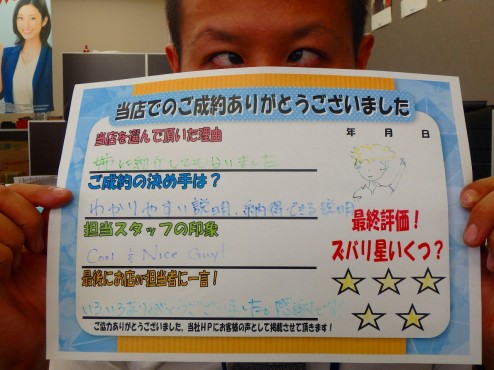 当店でのご成約ありがとうございました
当店を選んで頂いた理由
姉に紹介してもらいました
年 月 日
ご成約の決め手は?
わかりやすい説明、納得できる説明
担当スタッフの印象
Cool & Nice Guy!
最終評価!
ズバリ星いくつ?
最後にお店か担当者に一言!
いろいろありがとうございました。感謝
ご協力ありがとうございました。当社HPにお客様の声として掲載させて頂きます!